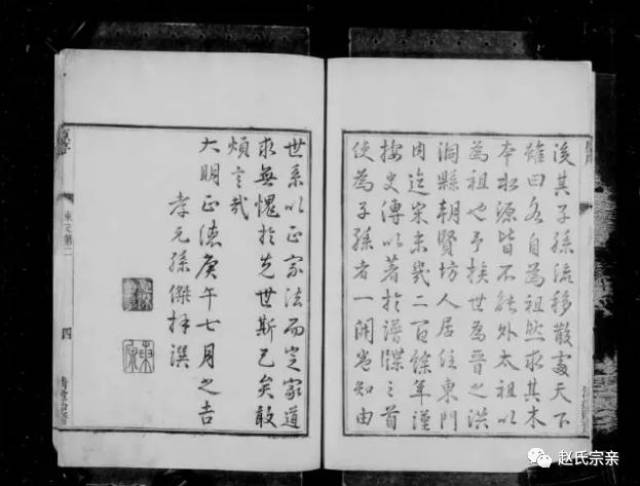 後其子孫流移散處天下
雖曰各自為祖然求其木
本水源皆不能外太祖以
為祖也予族世為晉之洪
洞縣朝賢坊人居住東門
內迄宋末幾二百餘年謹
按史傳以著於譜牒之首
使為子孫者一開卷知由
世系以正家法而定家道
求無愧於先世斯已矣敢
煩言哉
大明正德庚午七月之吉
孝元孫傑拜撰
四
赵氏宗亲